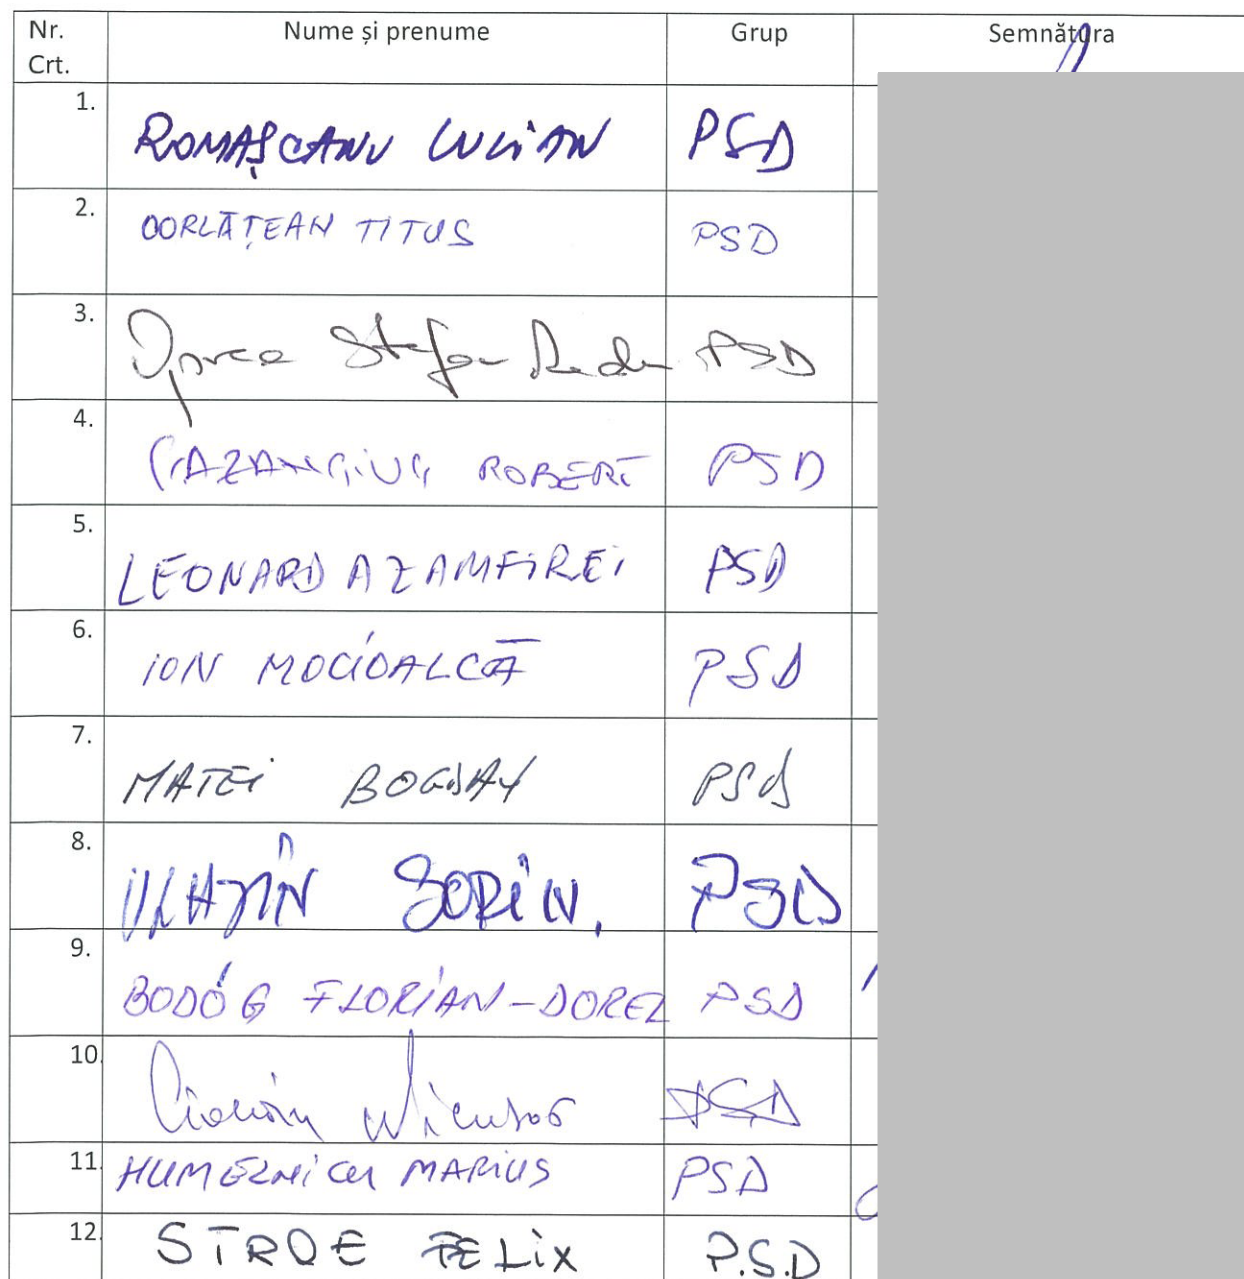 Nr. Crt. Nume și prenume Grup Semnătura
1. ROMAȘCANU LUCIAN PSD
2. CORLĂȚEAN TITUS PSD
3. Oprea Stefan Radu PSD
4. CAZANCIUC ROBERT PSD
5. LEONARD AZAMFIREI PSD
6. ION MOCIOALCĂ PSD
7. MATEI BOGDAN PSD
8. SORIN. PSD
9. BODÓG FLORIAN-DOREL PSD
10. PSD
11. HUMELNICU MARIUS PSD
12. STROE FELIX P.S.D